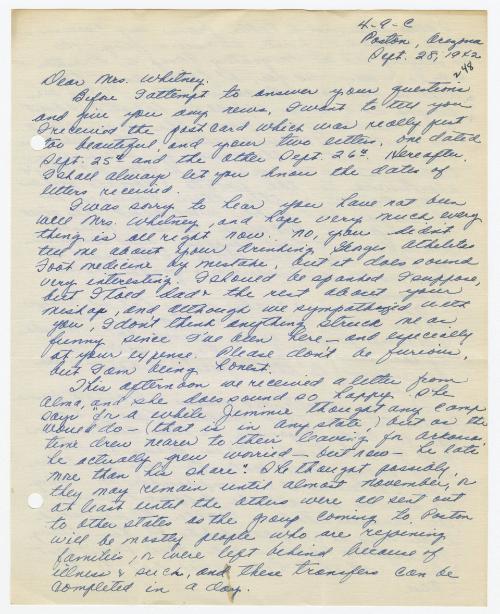 4-9-C
Poston, Arizona
Sept. 28, 1942
Dear Mrs. Whitney:
Before I attempt to answer your questions
and give you any news, I want to tell you
I received the post card which was really just
too beautiful, and your two letters, one dated
Sept. 25th and the other Sept. 26th. Hereafter
I shall always let you know the dates of
letters received.
I was sorry to hear you have not been
well Mrs. Whitney, and hope very much every
thing is all right now. No, you didn't
tell me about your drinking Athletes
Foot medicine by mistake, but it does sound
very interesting. I should be spanked I suppose,
but I told dad & the rest about your
mishap, and although we sympathized with
you, I don't think anything struck me as
funny since I've been here — and especially
at your expense. Please don't be furious,
but I am being honest.
This afternoon we received a letter from
Alma, and she does sound so happy. She
says "For a while Jimmie thought any camp
would do — (that is in any state), but as the
time drew nearer to their leaving for Arkansas
he actually grew worried — but now — he eats
more than his share". She thought possibly
they may remain until almost November, or
at least until the others were all sent out
to other states as the group coming to Poston
will be mostly people who are rejoining
families, or were left behind because of
illness & such, and these transfers can be
completed in a day.